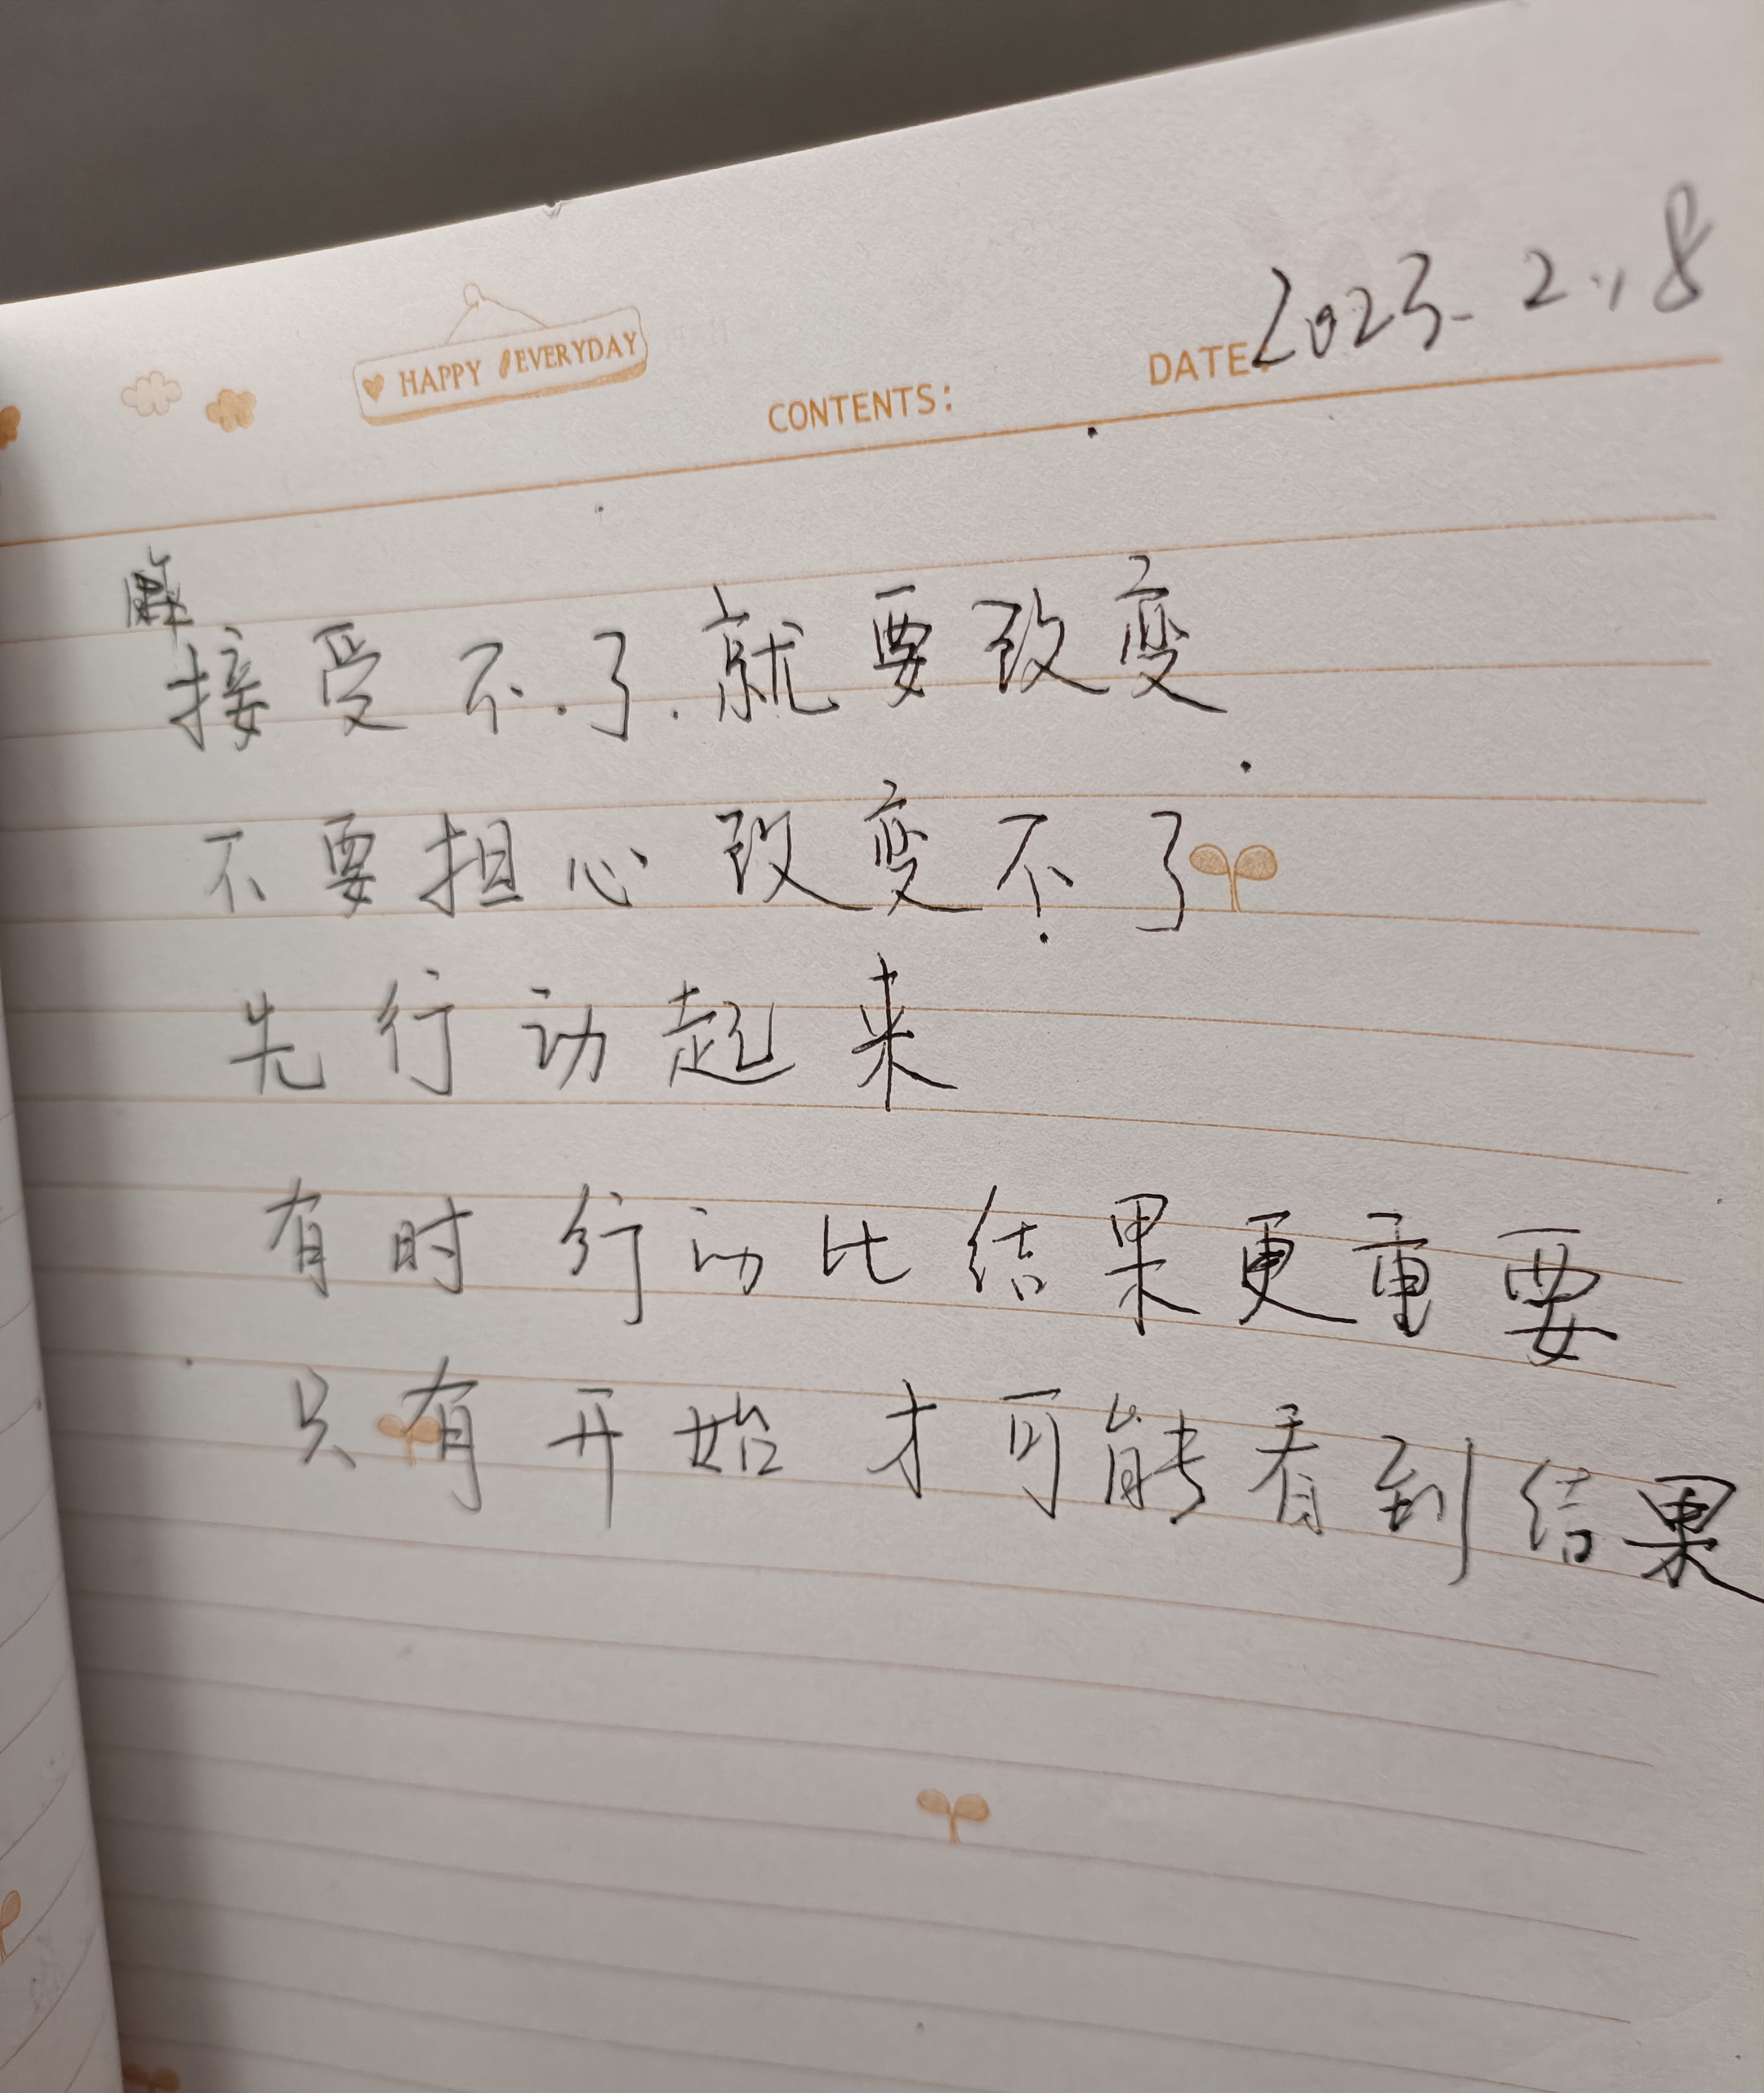 2023.2.18
HAPPY EVERYDAY
CONTENTS:
DATE:
接受不了.就要改变
不要担心改变不了
先行动起来
有时行动比结果更重要
只有开始才可能看到结果